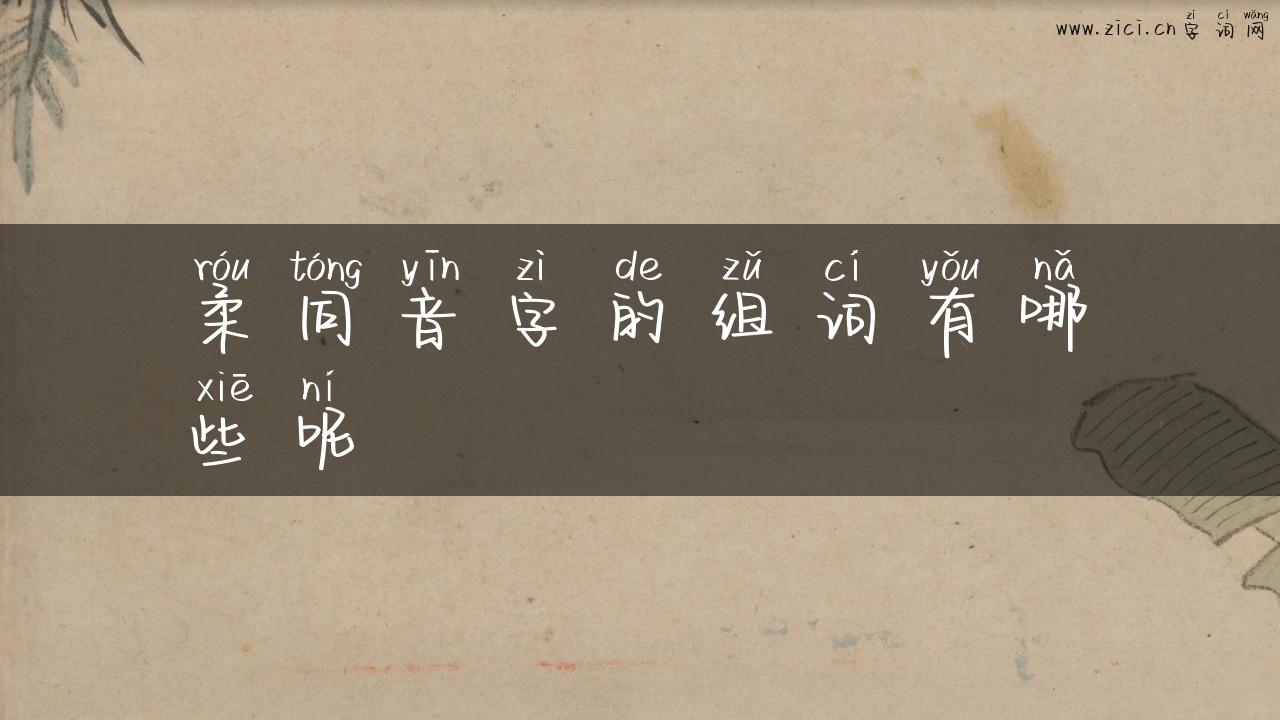 zì cí wǎng
www.zici.cn 字 词 网
róu tóng yīn zì de zǔ cí yǒu nǎ
柔 同 音 字 的 组 词 有 哪
xiē ní
些 呢